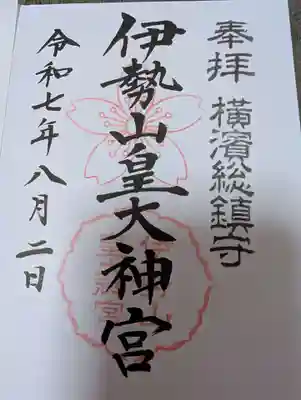 奉拝 横濱総鎮守
伊勢山皇大神宮
令和七年八月二日